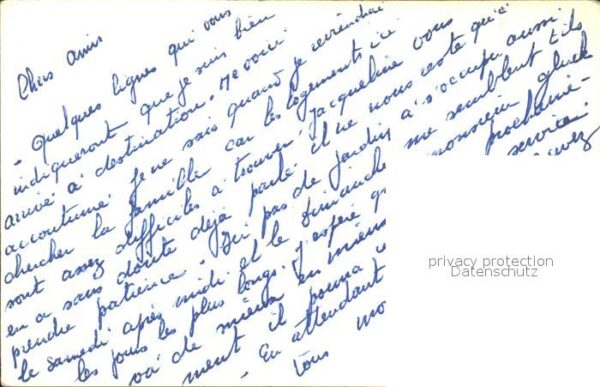 Chers amis
- Quelques lignes qui vous
indiqueront que je suis bien
arrivé à destination. Me voici
accoutumé. Je ne sais quand je reviendrai
chercher la famille car les logements ici
sont assez difficiles à trouver. Jacqueline vous
en a sans doute déjà parlé. il ne nous reste qu'à
prendre patience. Ici pas de jardin, à s'occuper aussi
le samedi après midi et le dimanche me semblent ils
les jours les plus longs. j'espère q monsieur gluck
va de mieux en mieux prochaine-
ment il pourra service.
- En attendant
tous
privacy protection
Datenschutz